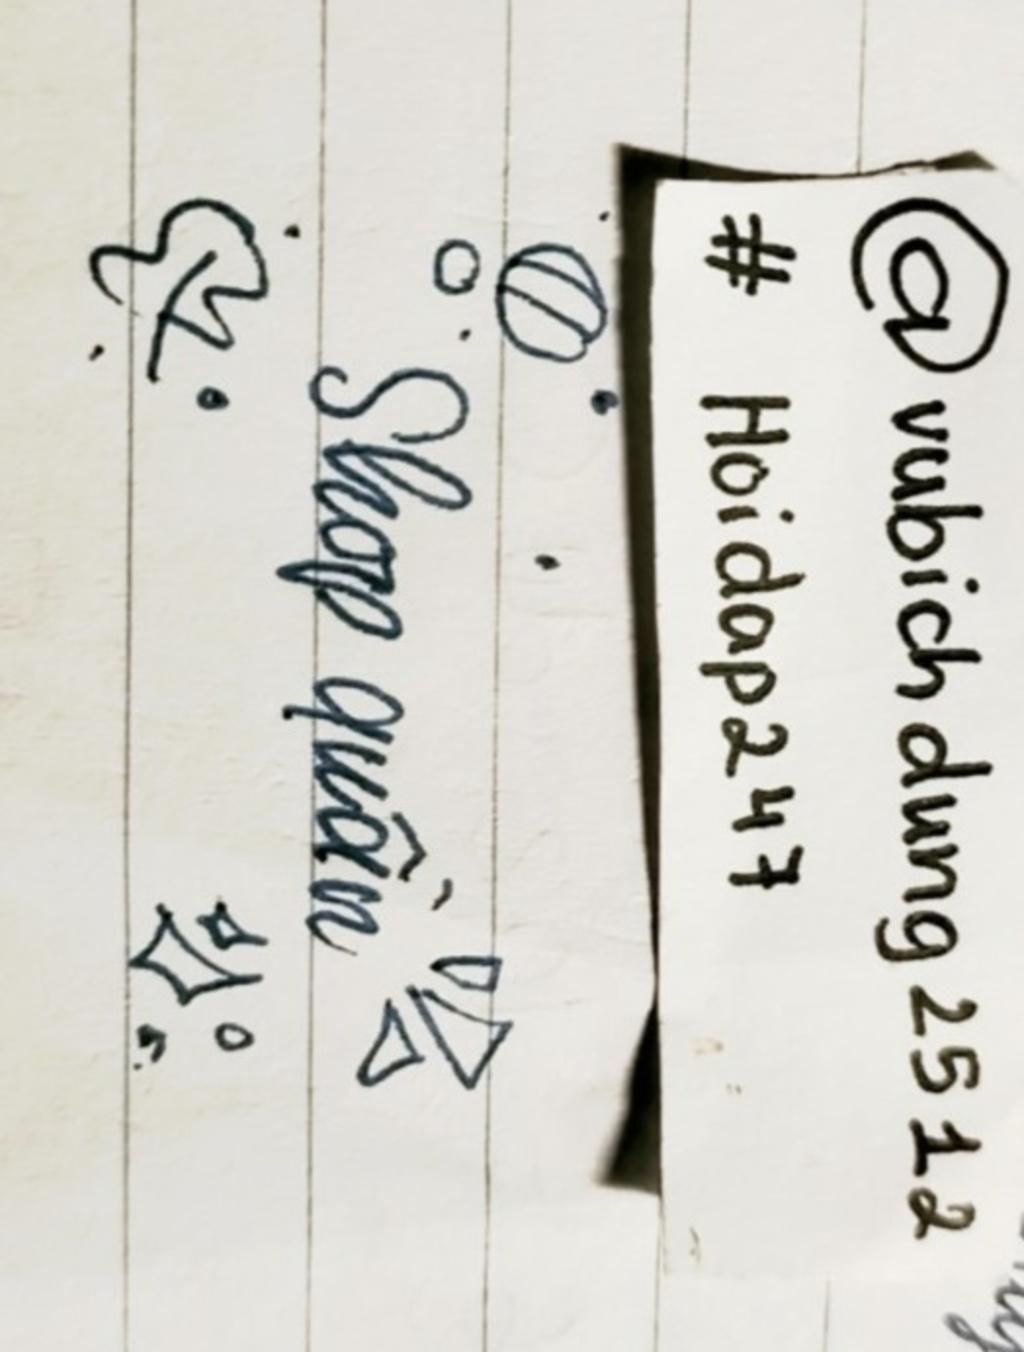 @vubichdung2512
# Hoidap247
Shop quần